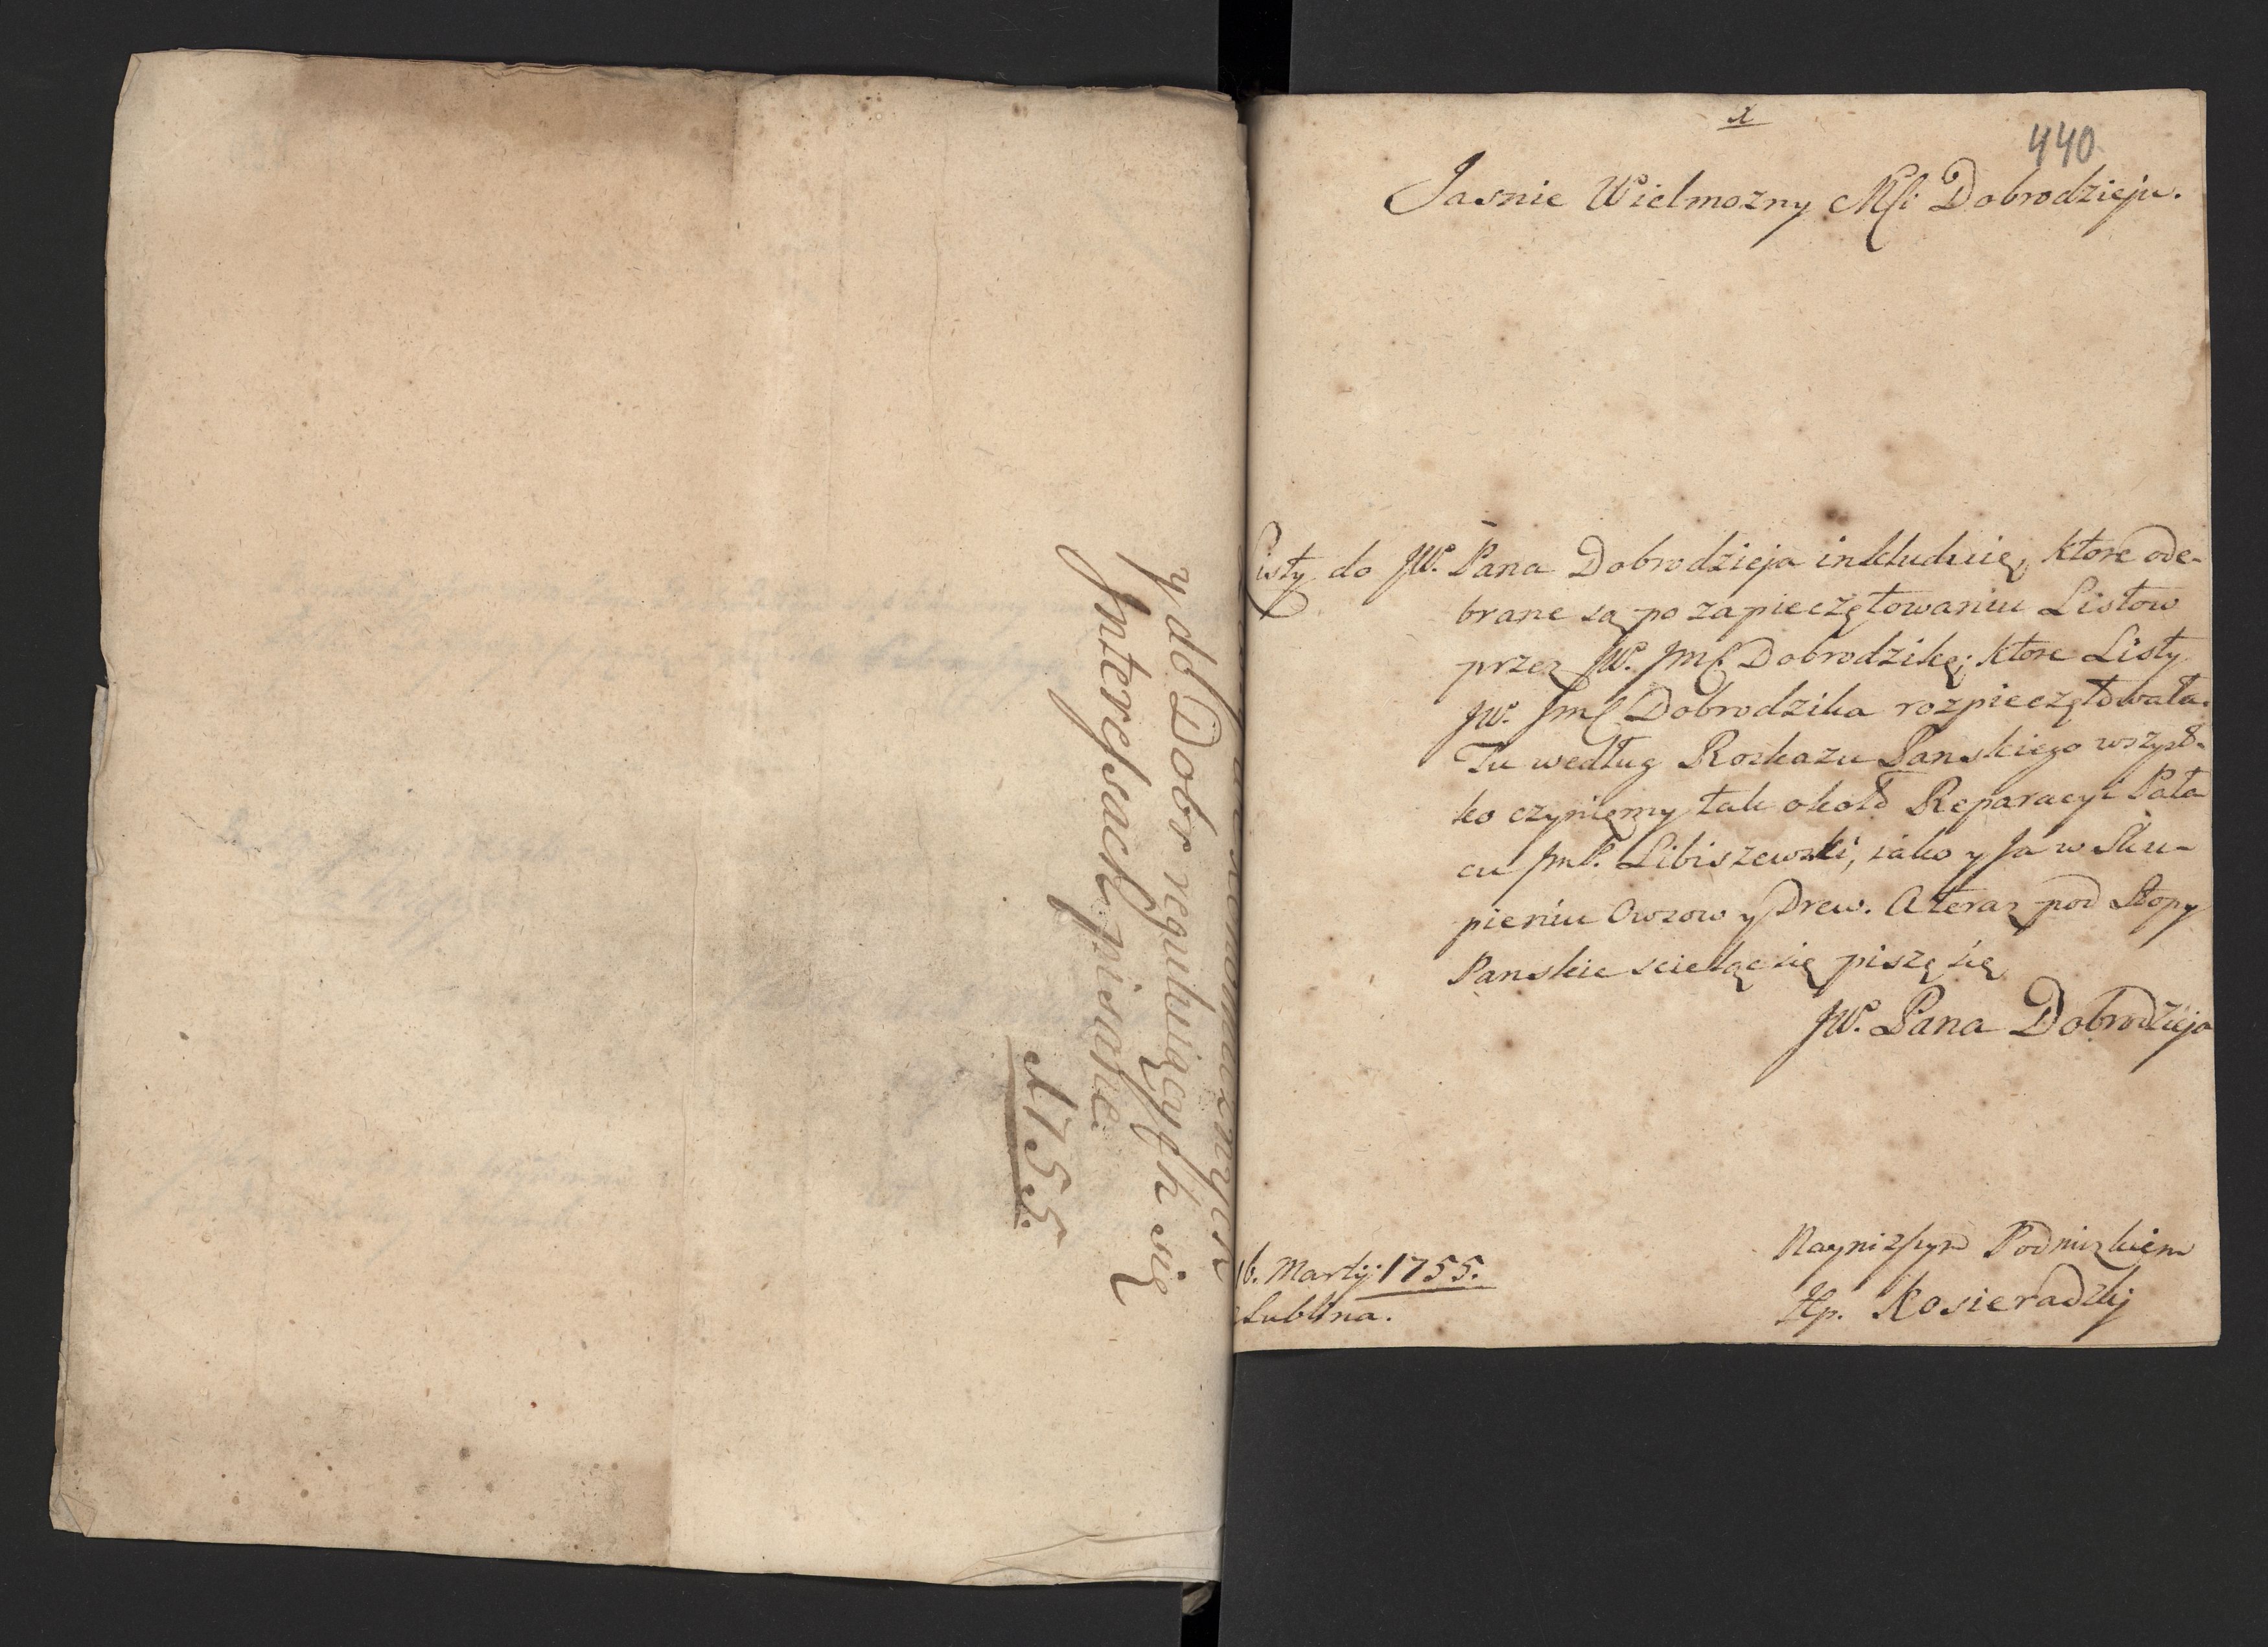 y do Dobr reguluiących się
Interessach pisane.
1755.
x
440
Jasnie Wielmozny Mſi Dobrodzieju.
Listy do JW. Pana Dobrodzieja inkluduię, ktore ode-
brane są po zapieczętowaniu Listow
przez JW. Jmſ Dobrodzikę; ktore Listy
JW. Jmſ Dobrodzika rozpieczętowała.
Tu według Roskazu Panskiego wszyst-
ko czyniemy tak około Reparacyi Pała
cu JmP. Libiszewski, iako y Ja w Sku-
pieniu Owsow y Drew. A teraz pod Stopy
Panskie scieląc się piszę się
JW. Pana Dobrodzieja
Nayniższym Podnuzkiem
Hp. Kosieradzkj
16. Martij: 1755.
Lublina.